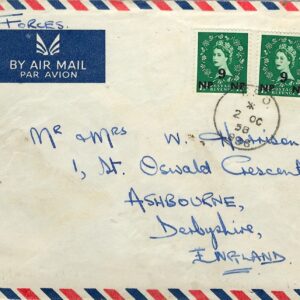 FORCES.
BY AIR MAIL
PAR AVION
9
NP
9
NP
POSTAGE
REVENUE
2 OC
58
Mr & Mrs W. Harrison
1, St. Oswald Crescent
ASHBOURNE,
Derbyshire,
ENGLAND.